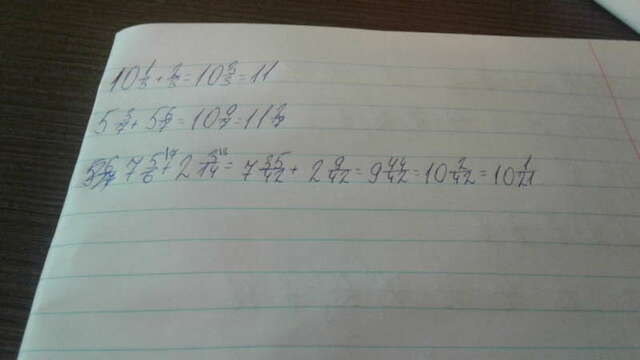 10 1/3 + 2/3 = 10 3/3 = 11
5 3/7 + 5 6/7 = 10 9/7 = 11 2/7
7 5/6 + 2 3/14 = 7 35/42 + 2 9/42 = 9 44/42 = 10 2/42 = 10 1/21